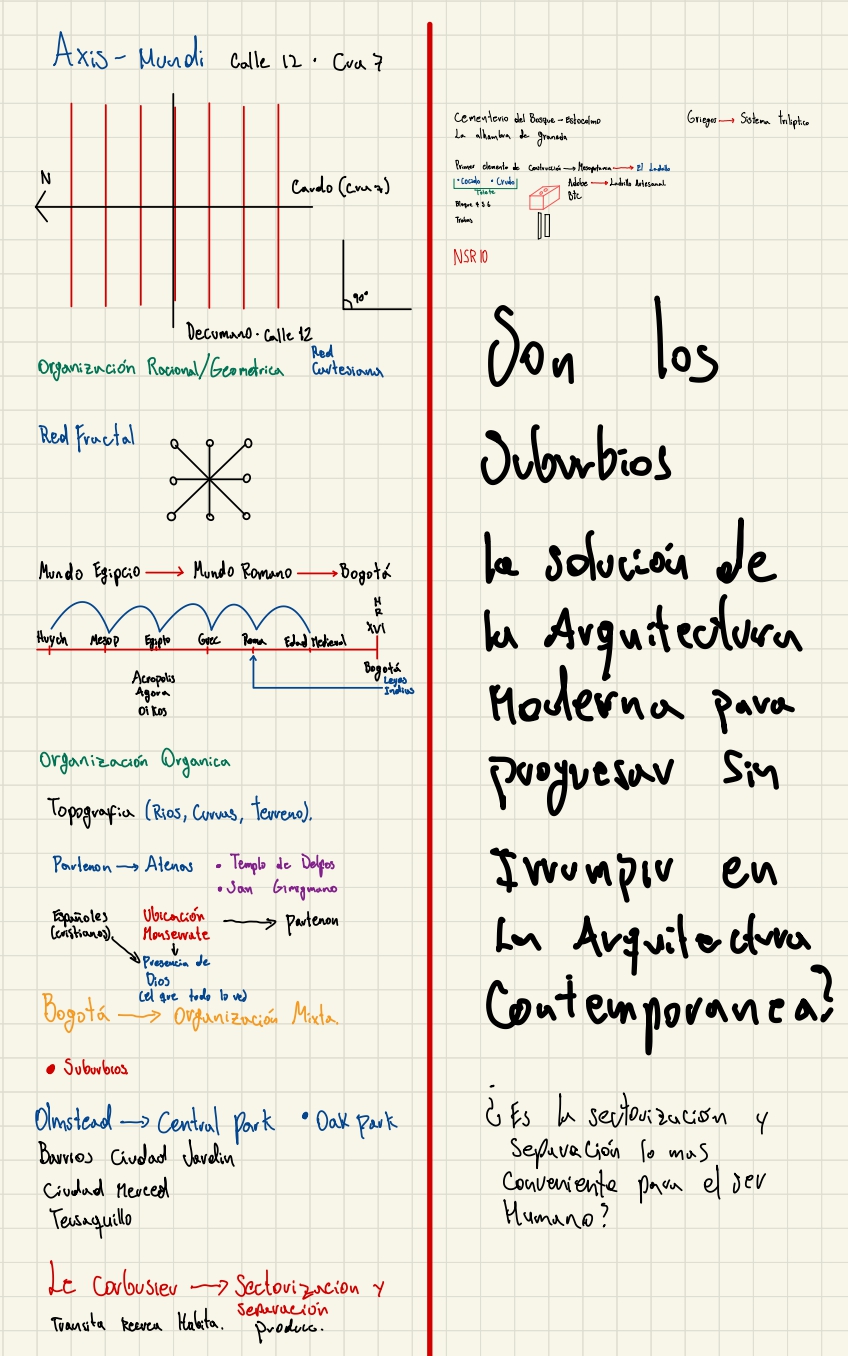 Axis - Mundi Calle 12 · Cra 7
N
Cardo (Cra 7)
90°
Decumano · Calle 12
Organización Racional/Geometrica Red Cartesiana
Red Fractal
Mundo Egipcio → Mundo Romano → Bogotá
N
R
XVI
Mesop Egipto Grec Roma Edad Medieval
Bogotá
Leyes
Indias
Acropolis
Agora
Oikos
Organización Organica
Topografia (Rios, Curvas, terreno).
Partenon → Atenas • Templo de Delfos
• San Gimignano
Españoles
(cristianos)
Ubicación
Monserrate
→ Partenon
Presencia de
Dios
(el que todo lo ve)
Bogotá → Organización Mixta.
• Suburbios
Olmstead → Central Park • Oak Park
Barrios Ciudad Jardin
Ciudad Merced
Teusaquillo
Le Corbusier → Sectorización y
separación
Transita Habita. Produce.
Cementerio del Bosque - Estocolmo
La alhambra de granada
Griegos → Sistema triliptico
Primer elemento de Construcción → Mesopotamia → El Ladrillo
• Cocido • Crudo
Tolete
Adobe → Ladrillo Artesanal
Btc
Bloque 4 5 6
Trabas
NSR 10
Son los
Suburbios
la solución de
la Arquitectura
Moderna para
progresar sin
Irrumpir en
La Arquitectura
Contemporanea?
¿Es la sectorización y
Separación lo mas
Conveniente para el ser
Humano?